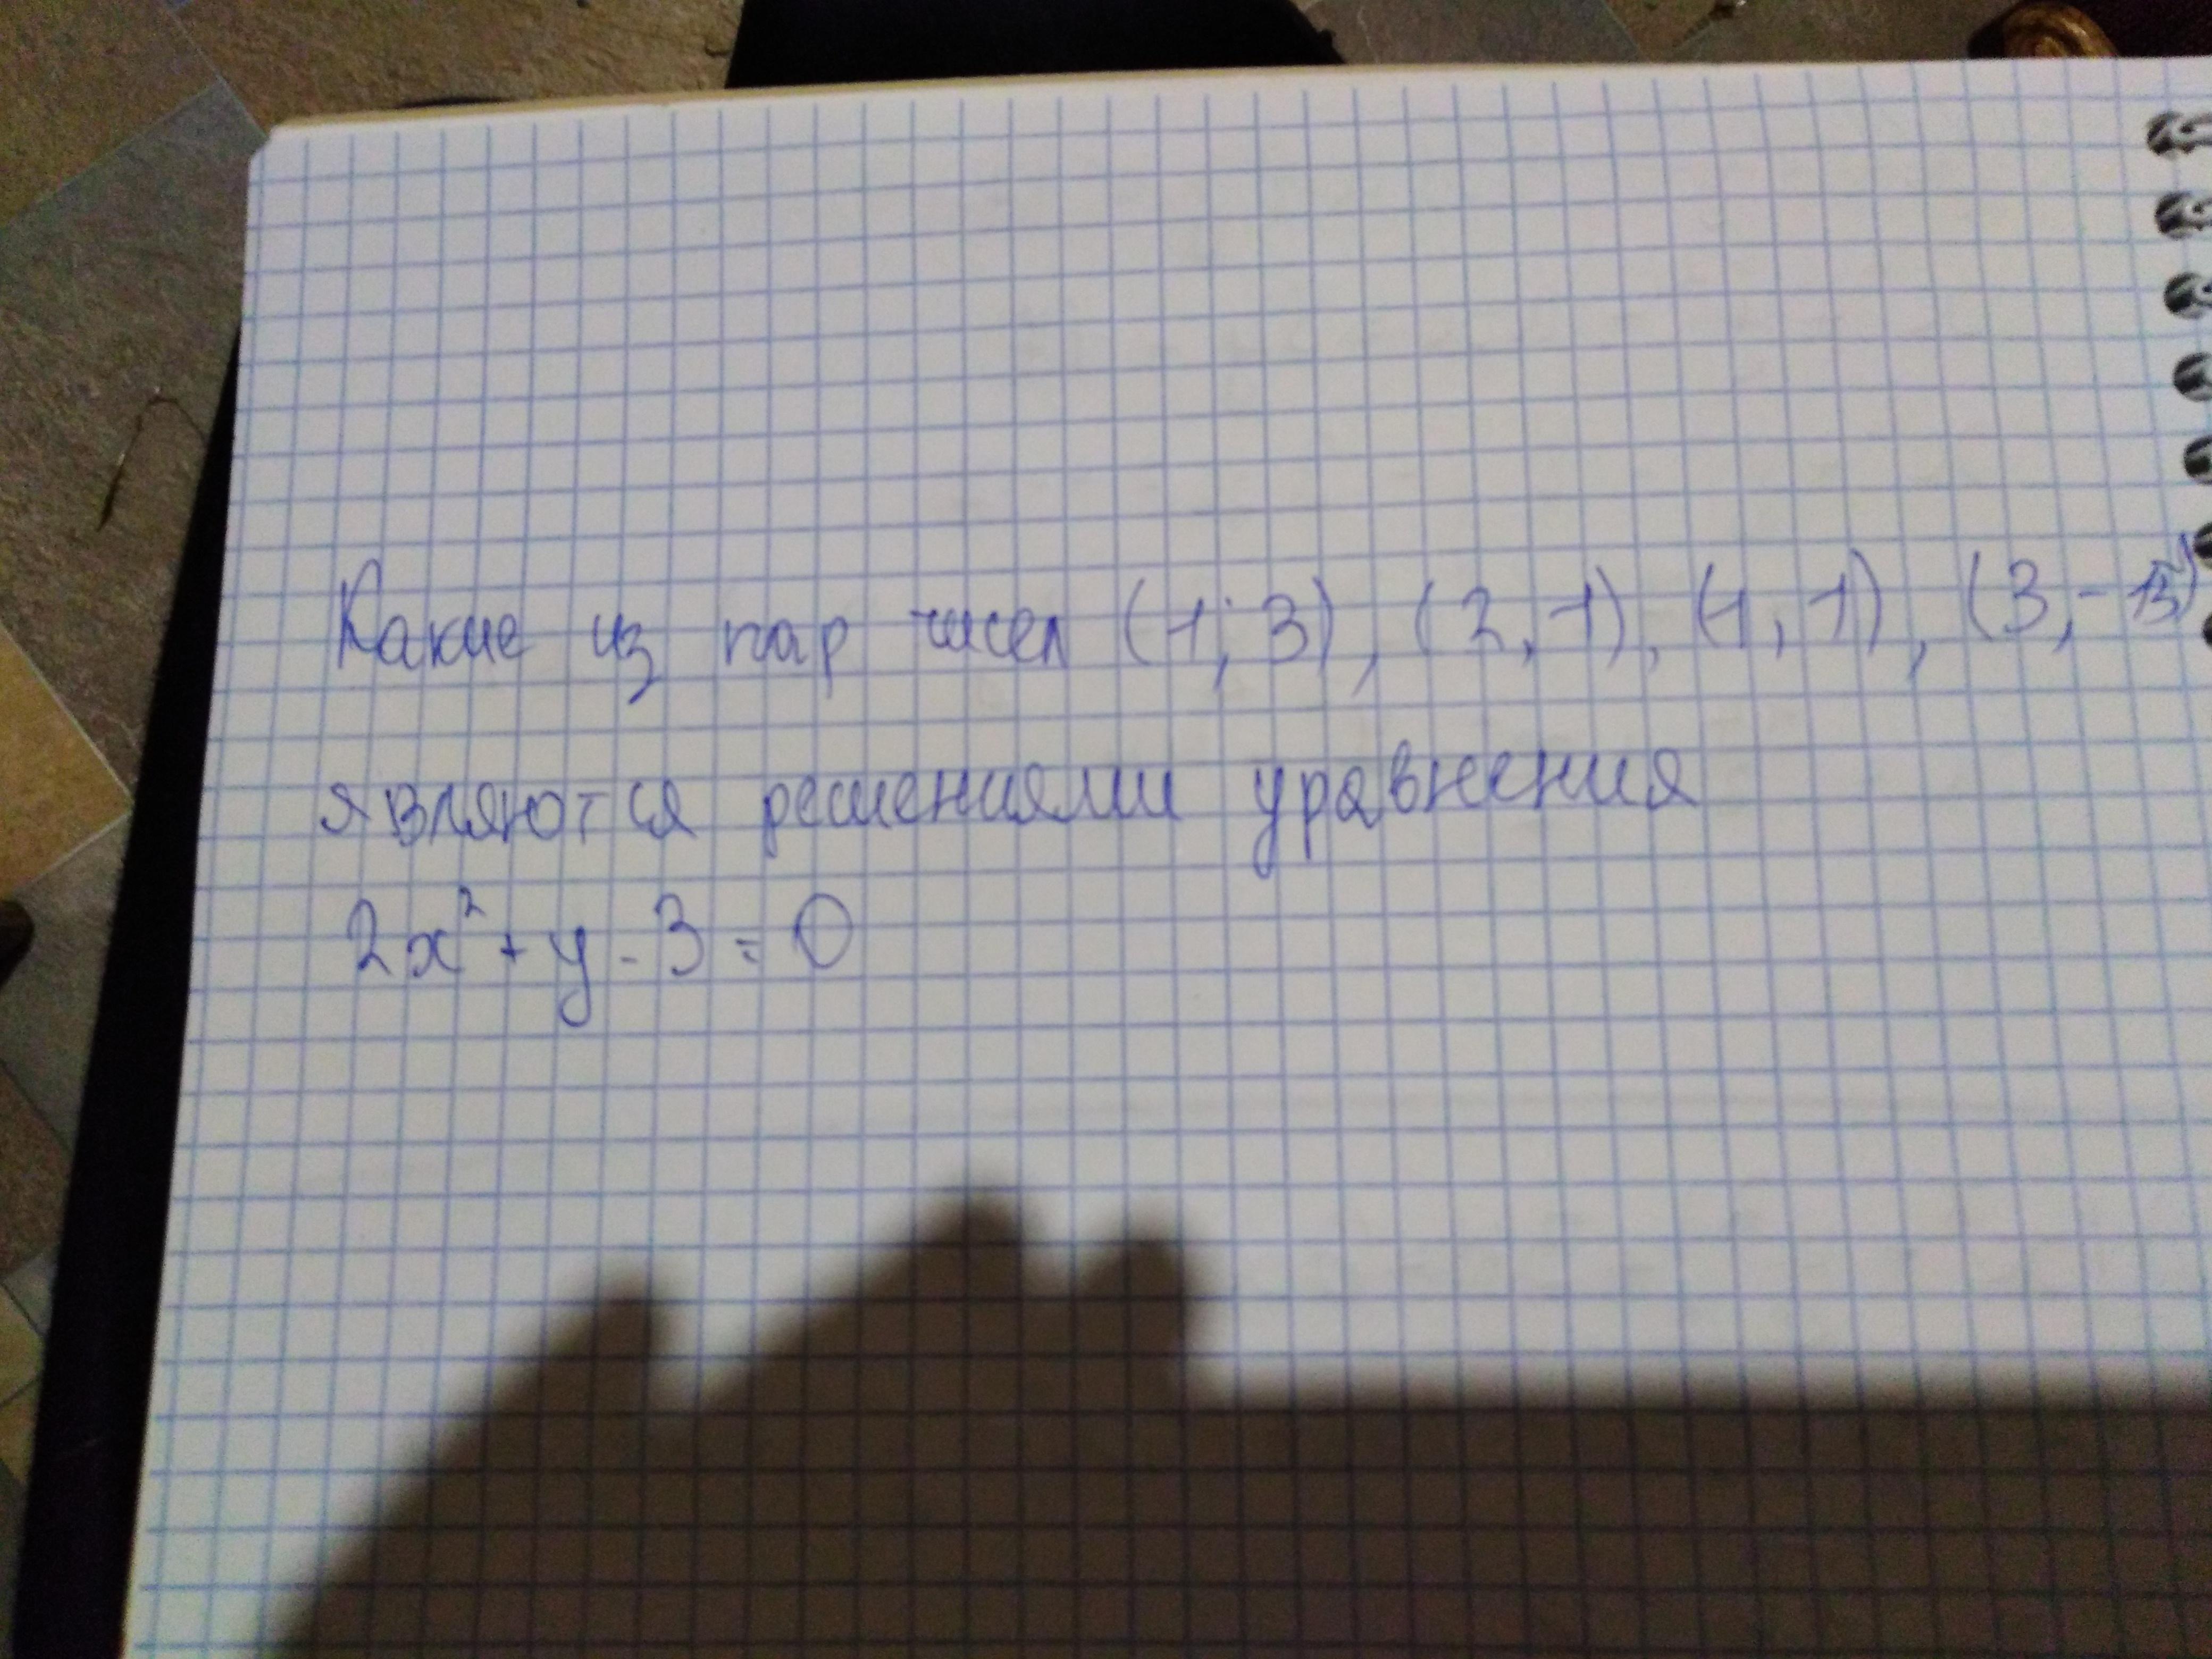 Какие из пар чисел (1; 3), (2, 1), (1, 1), (3, -15)
являются решениями уравнения
2x² + y - 3 = 0